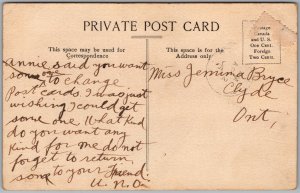 PRIVATE POST CARD
This space may be used for
Correspondence
This space is for the
Address only
Postage
Canada
and U. S.
One Cent.
Foreign
Two Cents.
Annie said you want
some one to change
Post cards. I was just
wishing I could get
some one. What kind
do you want any
kind for me do not
forget to return
some to your friend.
Miss Jemima Bryce
Clyde
Ont,